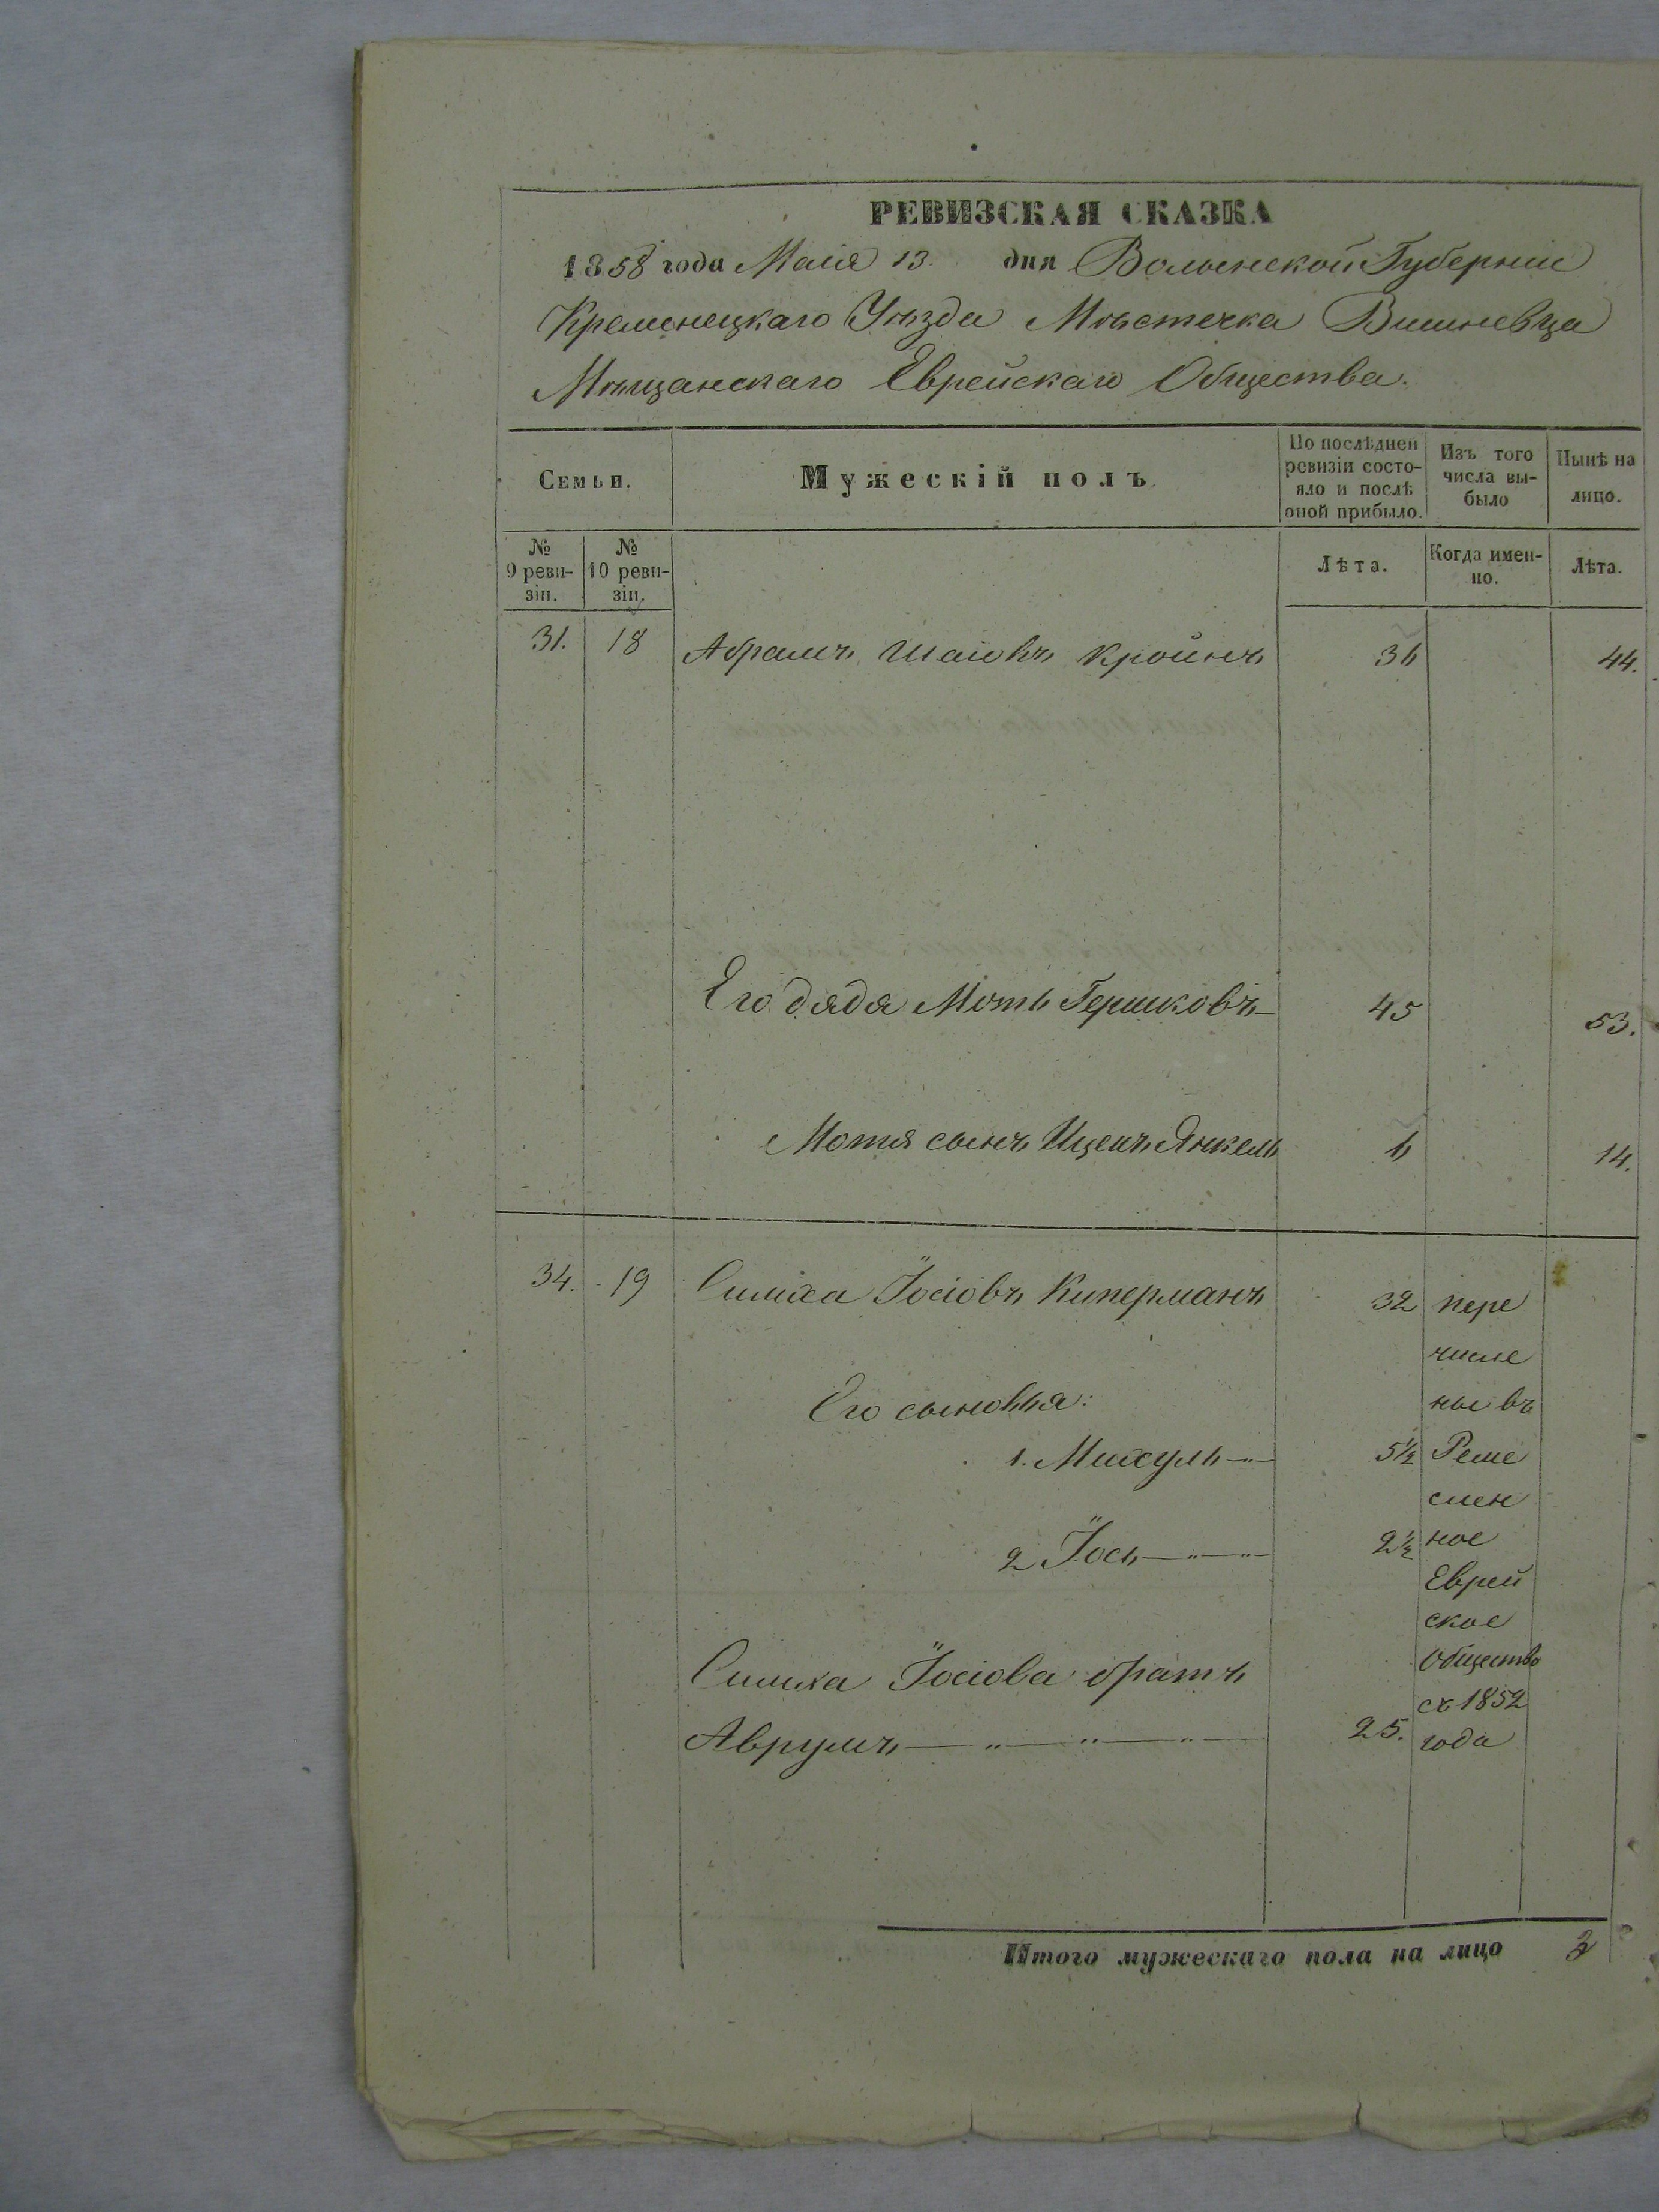 РЕВИЗСКАЯ СКАЗКА
1858 года Маія 13. дня Волынской Губерніи
Кременецкаго Уѣзда Мѣстечка Вишневца
Мѣщанскаго Еврейскаго Общества.
Семьи.
Мужескій полъ.
По послѣдней
ревизіи состо-
яло и послѣ
оной прибыло.
Изъ того
числа вы-
было
Нынѣ на
лицо.
№
9 реви-
зіи.
№
10 реви-
зіи.
Лѣта.
Когда имен-
но.
Лѣта.
31. 18 Абрамъ Шаіовъ Кройнъ 36 44.
Его дядя Моть Гершковъ 45 53.
Мотя сынъ Ицекъ Янкель 6 14.
34. 19 Симха Іосіовъ Киперманъ 32 пере
числе
Его сыновья: ны въ
1. Михуль —„— 5½ Реме
слен
2 Іось —„—„— 2½ ное
Еврей
ское
Симха Іосіова братъ Общество
съ 1852
Аврумъ —„—„—„— 25. года
Итого мужескаго пола на лицо 3